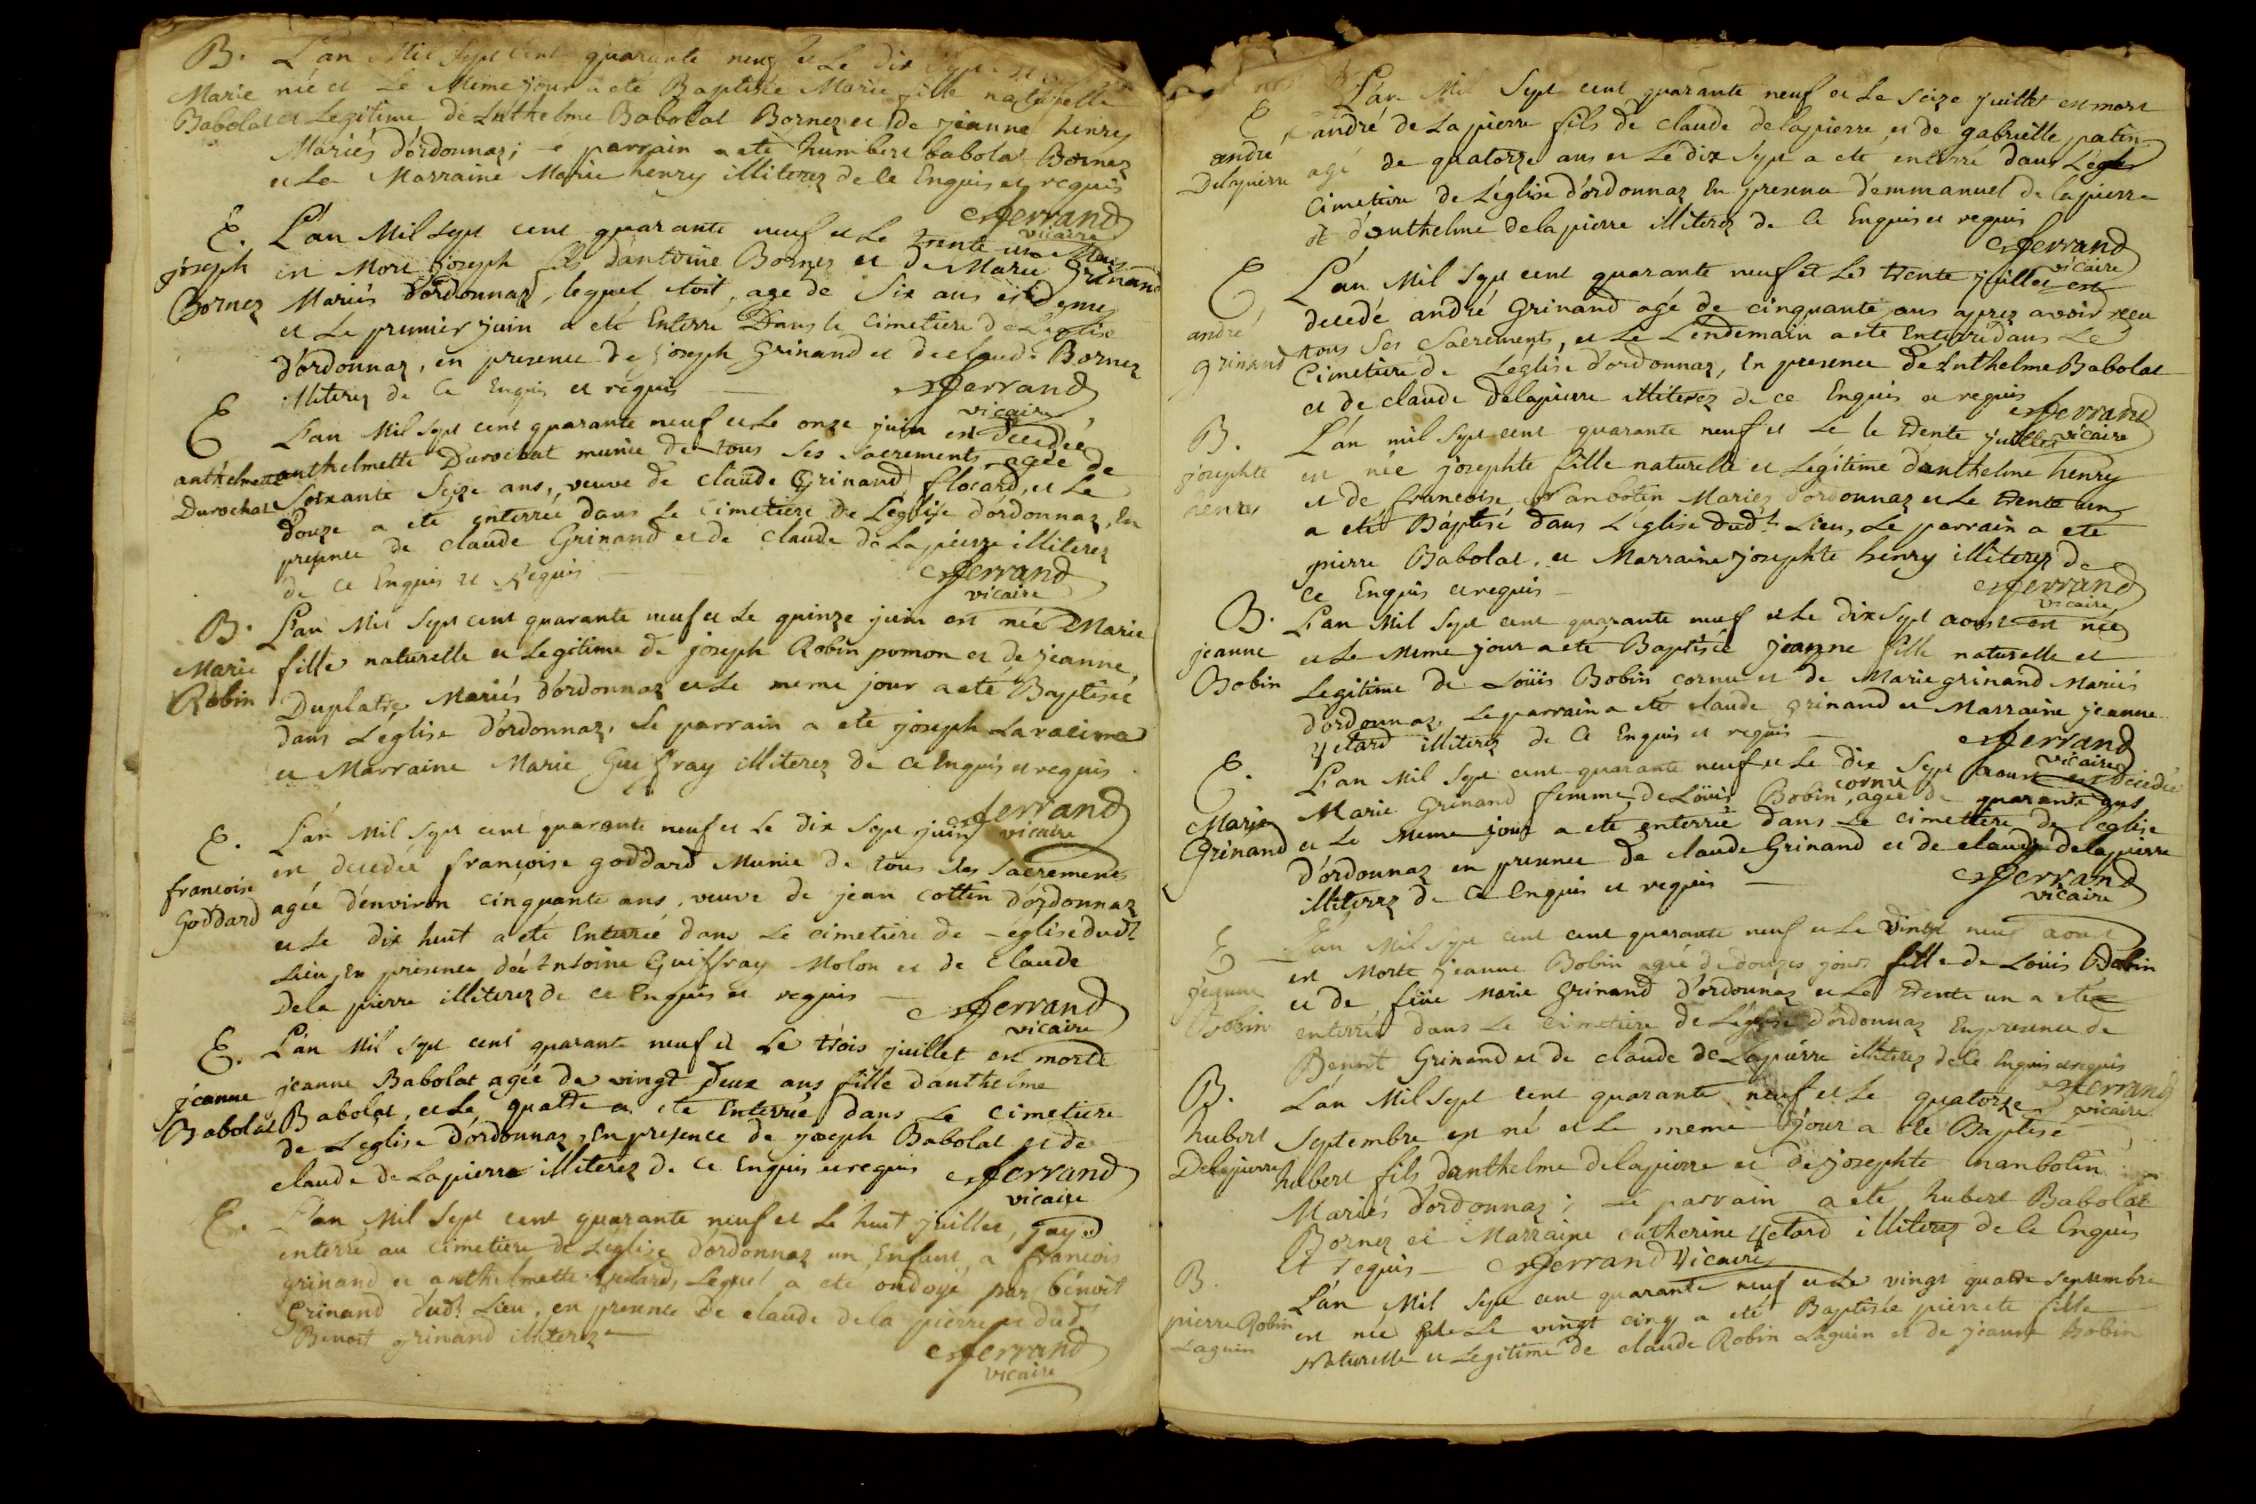 B. L'an Mil sept cent quarante neuf et Le dix
Marie née et Le Meme jour a eté Baptisée Marie fille naturelle
Babolat et Legitime de Anthelme Babolat Bornez et de jeanne henry
Mariés d'ordonnaz; e parrain a eté humbert babolat Bornez
et La Marraine Marie henry illiterez de ce Enquis et requis
ferrand
vicaire
E. L'an Mil sept cent quarante neuf et Le trente un May
joseph est Mort joseph fils d'antoine Bornez et de Marie Grinand
Bornez Mariés d'ordonnaz, lequel etoit, age de six ans et demy
et Le premier juin a eté Enterré Dans le cimetiere de L'eglise
d'ordonnaz, en presence de joseph Grinand et de claude Bornez
illiterez de Ce Enquis et requis ferrand
vicaire
E L'an Mil sept cent quarante neuf et Le onze juin est decedée
anthelmette anthelmette Durochat munie de tous ses sacrements agée de
Durochat soixante seize ans, veuve de claude Grinand flocard, et Le
douze a eté enterrée dans Le cimetiere de L'eglise d'ordonnaz, En
presence de claude Grinand et de claude de Lapierre illiterez
de ce Enquis et Requis ferrand
vicaire
B. L'an Mil sept cent quarante neuf et Le quinze juin est née Marie
Marie fille naturelle et Legitime de joseph Robin pomon et de jeanne
Robin Duplatre Mariés d'ordonnaz et Le meme jour a eté Baptisée
dans L'eglise d'ordonnaz, Le parrain a eté joseph Laracine
et Marraine Marie Guiffray illiterez de ce Enquis et requis
ferrand
vicaire
E. L'an Mil sept cent quarante neuf et Le dix sept juin
est decedée françoise goddard Munie de tous ses sacrements
francoise agée d'environ cinquante ans, veuve de jean cottin d'ordonnaz
goddard et Le dix huit a eté Enterrée dans Le cimetiere de église dudt
Lieu, En presence de Antoine Guiffray Molon et de Claude
De la pierre illiterez de ce Enquis et requis ferrand
vicaire
E. L'an Mil sept cent quarante neuf et Le trois juillet est morte
jeanne jeanne Babolat agée de vingt deux ans fille d'anthelme
Babolat Babolat, et Le quatre a eté Enterrée dans Le cimetiere
de L'eglise d'ordonnaz, En presence de joseph Babolat et de
claude de Lapierre illiterez de ce Enquis et requis ferrand
vicaire
E. L'an Mil sept cent quarante neuf et Le huit juillet, jay
enterré au cimetiere de L'eglise d'ordonnaz un Enfant, a françois
grinand et anthelmette yetard, Lequel a eté ondoyé par bénoit
Grinand dudt Lieu, en presence de claude de la pierre et dudt
Benoit grinand illiterez
ferrand
vicaire
L'an Mil sept cent quarante neuf et Le seize juillet est mort
E andré de Lapierre fils de claude delapierre et de gabrielle patin
andré agé de quatorze ans et Le dix sept a eté enterré dans L'egli
Delapierre cimetiere de L'église d'ordonnaz En presence d'emmanuel de lapierre
et d'anthelme delapierre illiterez de Ce Enquis et requis
ferrand
vicaire
E L'an Mil sept cent quarante neuf et Le trente juillet est
decedé andré Grinand agé de cinquante ans aprez avoir reçu
andré tous ses sacrements, et Le Lendemain a eté Enterré dans Le
grinand Cimetiere de L'eglise d'ordonnaz, En presence de Anthelme Babolat
et de claude delapierre illiterez de ce Enquis et requis
ferrand
vicaire
B. L'an mil sept cent quarante neuf et Le le trente juillet
josephte est née josephte fille naturelle et Legitime d'anthelme henry
henry et de francoise Nanbotin Mariez d'ordonnaz et Le trente un
a eté Baptisé dans L'église dudt Lieu, Le parrain a eté
pierre Babolat, et Marraine josephte henry illiterez de
ce Enquis et requis ferrand
vicaire
B. L'an Mil sept cent quarante neuf et Le dix sept aoust est née
jeanne et Le Meme jour a eté Baptisée jeanne fille naturelle et
Bobin Legitime de Loüis Bobin cornu et de Marie grinand Mariés
d'ordonnaz Le parrain a eté claude grinand et Marraine jeanne
yetard illiterez de Ce Enquis et requis ferrand
vicaire
E. L'an Mil sept cent quarante neuf et Le dix sept aoust est decedée
Marie Marie Grinand femme de Loüis Bobin cornu, agée de quarante ans
Grinand et Le Meme jour a eté enterrée dans Le cimettiere de l'eglise
d'ordonnaz en presence de claude Grinand et de claude delapierre
illiterez de ce Enquis et requis ferrand
vicaire
E L'an Mil sept cent cent quarante neuf et Le vingt neuf aoust
est Morte jeanne Bobin agée de douzes jours fille de Loüis Bobin
jeanne et de füe Marie Grinand d'ordonnaz et Le trente un a eté
Bobin enterrée dans Le cimetiere de L'eglise d'ordonnaz En presence de
Benoit Grinand et de claude de Lapierre illiterez de Ce Enquis et requis
ferrand
vicaire
B. L'an Mil sept cent quarante neuf et Le quatorze
hubert septembre est né et Le meme jour a eté Baptisé
Delapierre hubert fils d'anthelme delapierre et de josephte nanbotin
Mariés d'ordonnaz; Le parrain a eté hubert Babolat
Bornez et Marraine catherine yetard illiterez de Ce Enquis
et requis ferrand vicaire
B. L'an Mil sept cent quarante neuf et Le vingt quatre septembre
pierre Robin est née et Le vingt cinq a eté Baptisée pierrete fille
Laguin Naturelle et Legitime de claude Robin Laguin et de jeanne Bobin